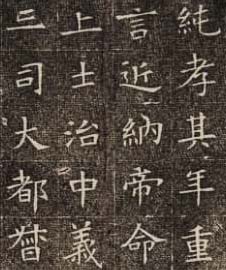 純孝其年重
言近納帝命
上士治中義
三司大都督